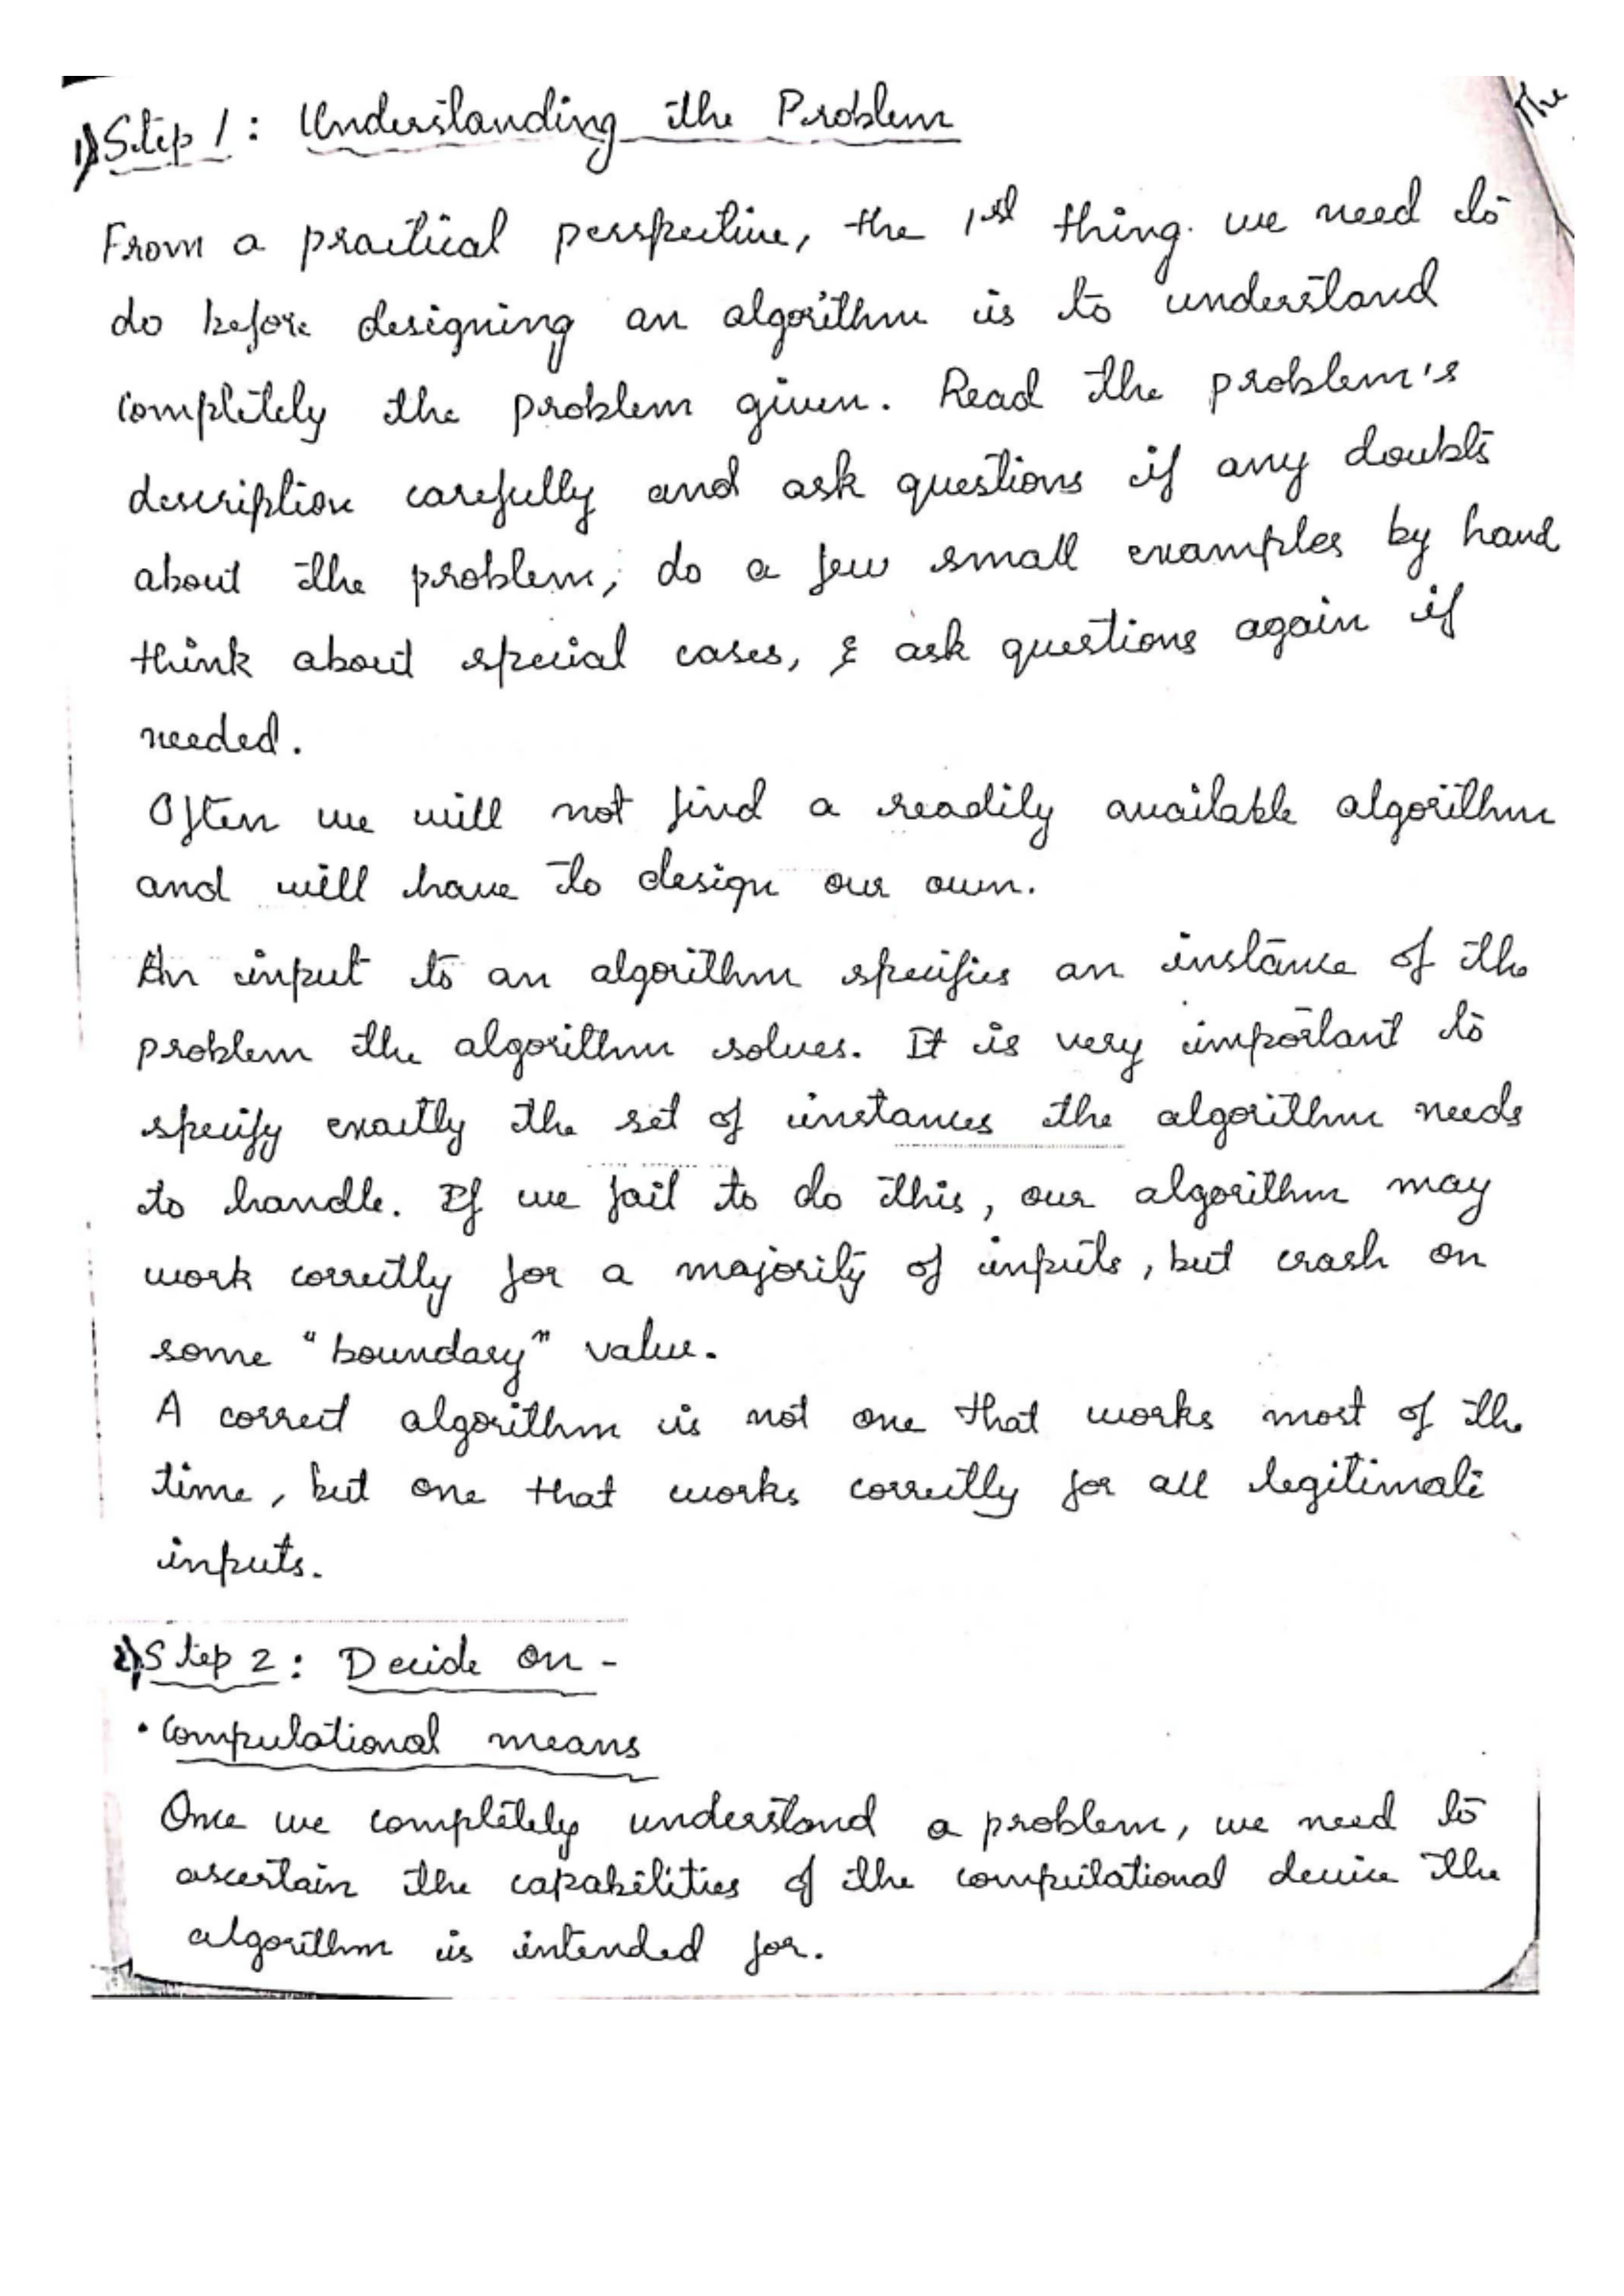 1) Step 1: Understanding the Problem
The
From a practical perspective, the 1st thing we need to
do before designing an algorithm is to understand
completely the problem given. Read the problem's
description carefully and ask questions if any doubts
about the problem, do a few small examples by hand
think about special cases, & ask questions again if
needed.
Often we will not find a readily available algorithm
and will have to design our own.
An input to an algorithm specifies an instance of the
problem the algorithm solves. It is very important to
specify exactly the set of instances the algorithm needs
to handle. If we fail to do this, our algorithm may
work correctly for a majority of inputs, but crash on
some "boundary" value.
A correct algorithm is not one that works most of the
time, but one that works correctly for all legitimate
inputs.
2) Step 2: Decide on -
• Computational means
Once we completely understand a problem, we need to
ascertain the capabilities of the computational device the
algorithm is intended for.